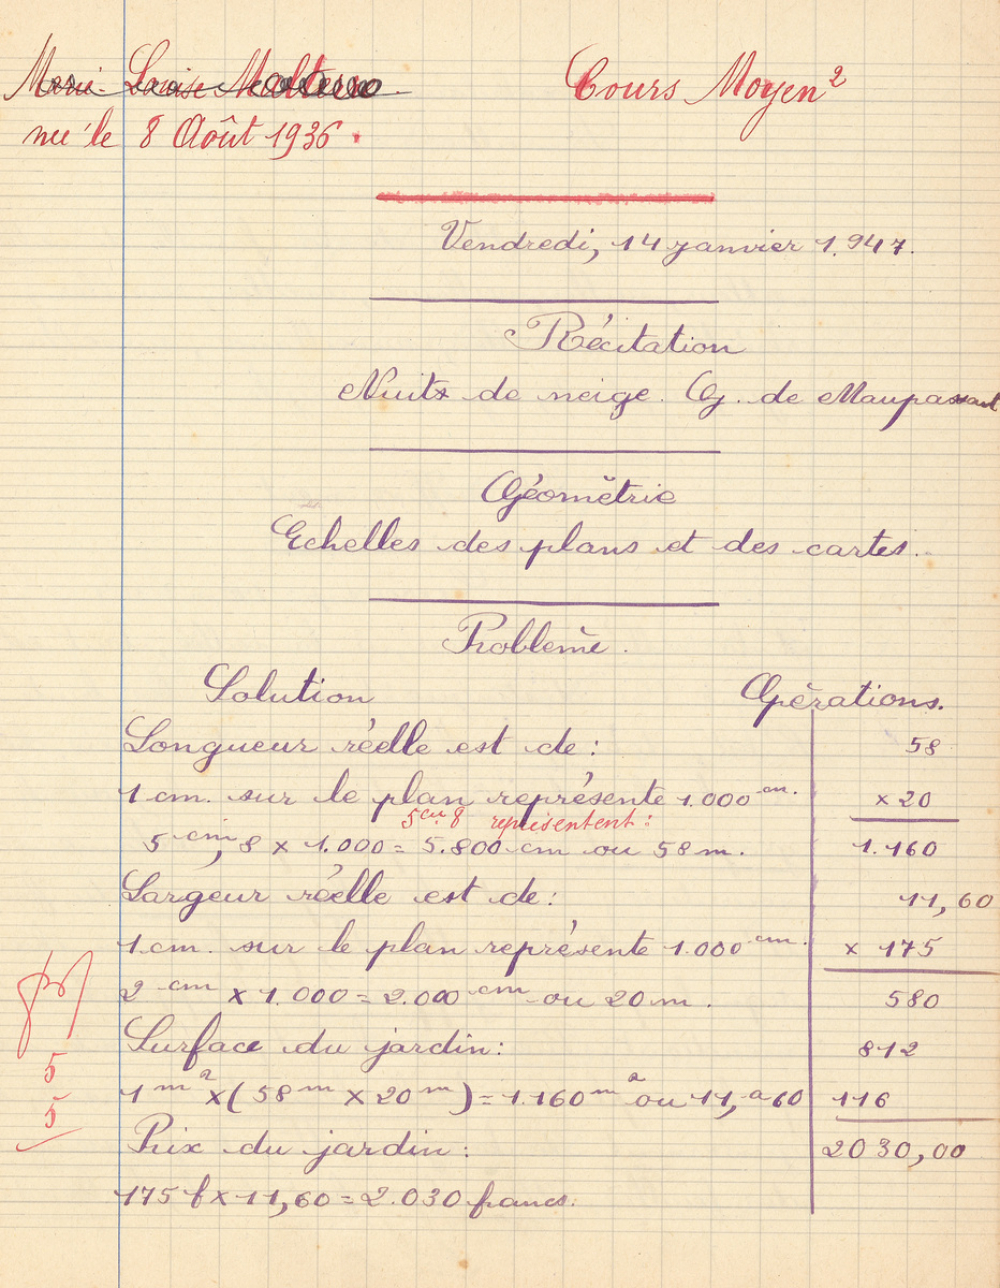 Marie Louise
Cours Moyen 2
née le 8 Août 1936.
Vendredi, 14 janvier 1.947.
Récitation
Nuits de neige. G. de Maupassant
Géométrie
Echelles des plans et des cartes.
Problème.
Solution
Opérations.
Longueur réelle est de :
58
1 cm. sur le plan représente 1.000 cm.
x 20
5 cm 8 représentent :
5 cm, 8 x 1.000 = 5.800 cm ou 58 m.
1.160
Largeur réelle est de :
11,60
1 cm. sur le plan représente 1.000 cm.
x 175
2 cm x 1.000 = 2.000 cm ou 20 m.
580
Surface du jardin :
812
1 m2 x ( 58 m x 20 m ) = 1.160 m2 ou 11, a 60
116
Prix du jardin :
2030,00
175 f x 11,60 = 2.030 francs.
5
5